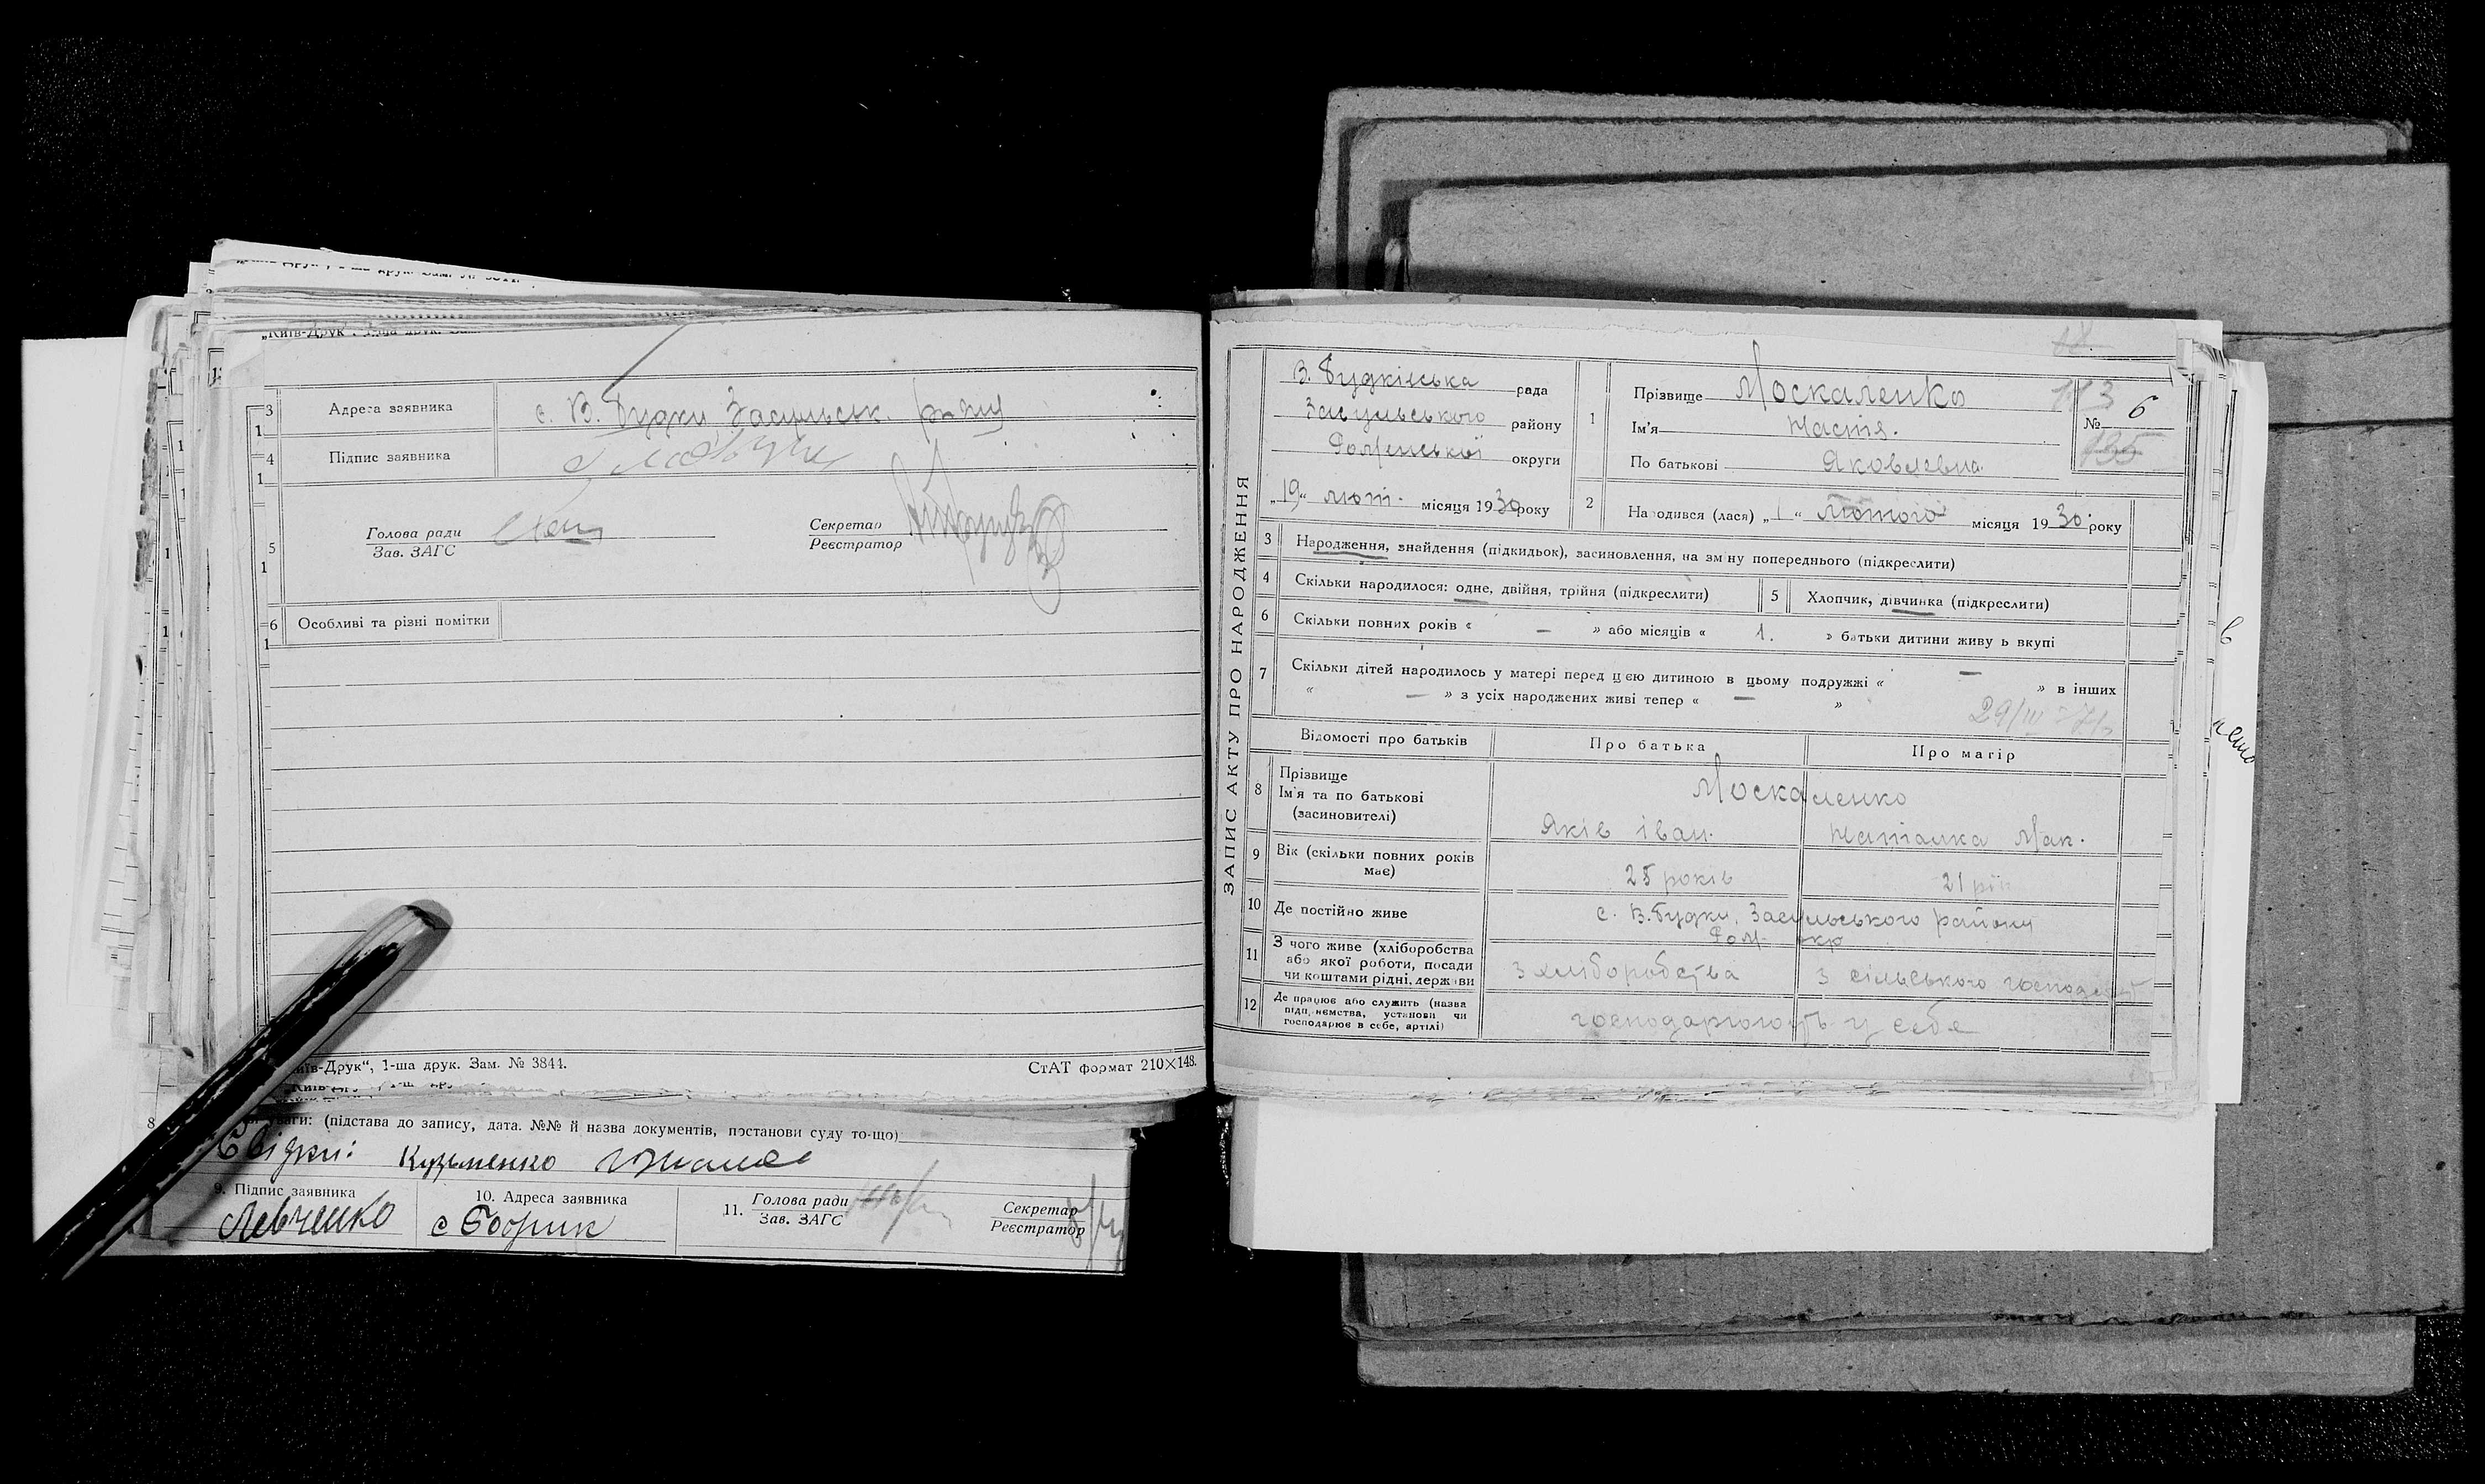 „Київ-Друк", 1-ша друк. За
3
1
Адреса заявника с. В. Будки Засульськ. р-ну
4
1
Підпис заявника
5
1
Голова ради
Зав. ЗАГС
Секретар
Реєстратор
6
1
Особливі та різні помітки
иїв-Друк", 1-ша друк. Зам. № 3844.
СтАТ формат 210×148.
ваги: (підстава до запису, дата. №№ й назва документів, постанови суду то-що)
Свідки: Кузьменко
9. Підпис заявника
Левченко
10. Адреса заявника
с Бобрик
11. Голова ради
Зав. ЗАГС
Секретар
Реєстратор
ЗАПИС АКТУ ПРО НАРОДЖЕННЯ
В. Будківська рада
Засульського району
Роменської округи
„19" лют. місяця 1930 року
1 Прізвище Москаленко
Ім'я Настя.
По батькові Яковлевна.
113
№ 6
195
2 Народився (лася) „1" Лютого місяця 1930 року
3 Народження, знайдення (підкидьок), засиновлення, на зміну попереднього (підкреслити)
4 Скільки народилося: одне, двійня, трійня (підкреслити)
5 Хлопчик, дівчинка (підкреслити)
6 Скільки повних років « — » або місяців « 1. » батьки дитини живуть вкупі
7 Скільки дітей народилось у матері перед цією дитиною в цьому подружжі « — » в інших
« — » з усіх народжених живі тепер « — »
Відомості про батьків
Про батька
Про матір
8 Прізвище
Ім'я та по батькові
(засиновителі)
Москаленко
Яків Іван.
Наталка Мак.
9 Вік (скільки повних років має)
25 років
21 рік
10 Де постійно живе
с. В. Будки, Засульського району
Ром. окр
11 З чого живе (хліборобства
або якої роботи, посади
чи коштами рідні, держави
З хліборобства
З сільського господарст
12 Де працює або служить (назва
підприємства, установи чи
господарює в себе, артілі)
господарюють у себе